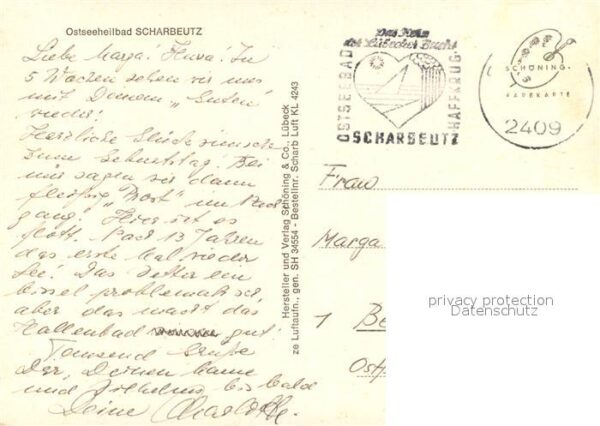 Ostseeheilbad SCHARBEUTZ
Liebe Marga! Hurra! In
5 Wochen sehen wir uns
mit Deinem "Guten"
wieder!
Herzliche Glückwünsche
zum Geburtstag! Bei
uns sagen wir dann
fleißig "Prost"
gang! Hier ist es
flott. Nach 13 Jahren
das erste Mal wieder
See! Das Wetter ein
bissel problematisch,
aber das macht das
Hallenbad gut!
Tausend Grüße
Dir, Deinen
und Wilhelm bis bald
Deine Charlotte.
Hersteller und Verlag Schöning & Co., Lübeck
ze Luftaufn., gen. SH 34554 - Bestellnr. Scharb Luft KL 4243
Das Herz
der Lübecker Bucht
OSTSEEBAD
HAFFKRUG
SCHARBEUTZ
SCHÖNING-
FARBKARTE
2409
Frau
Marga
1 Be
Ost
privacy protection
Datenschutz